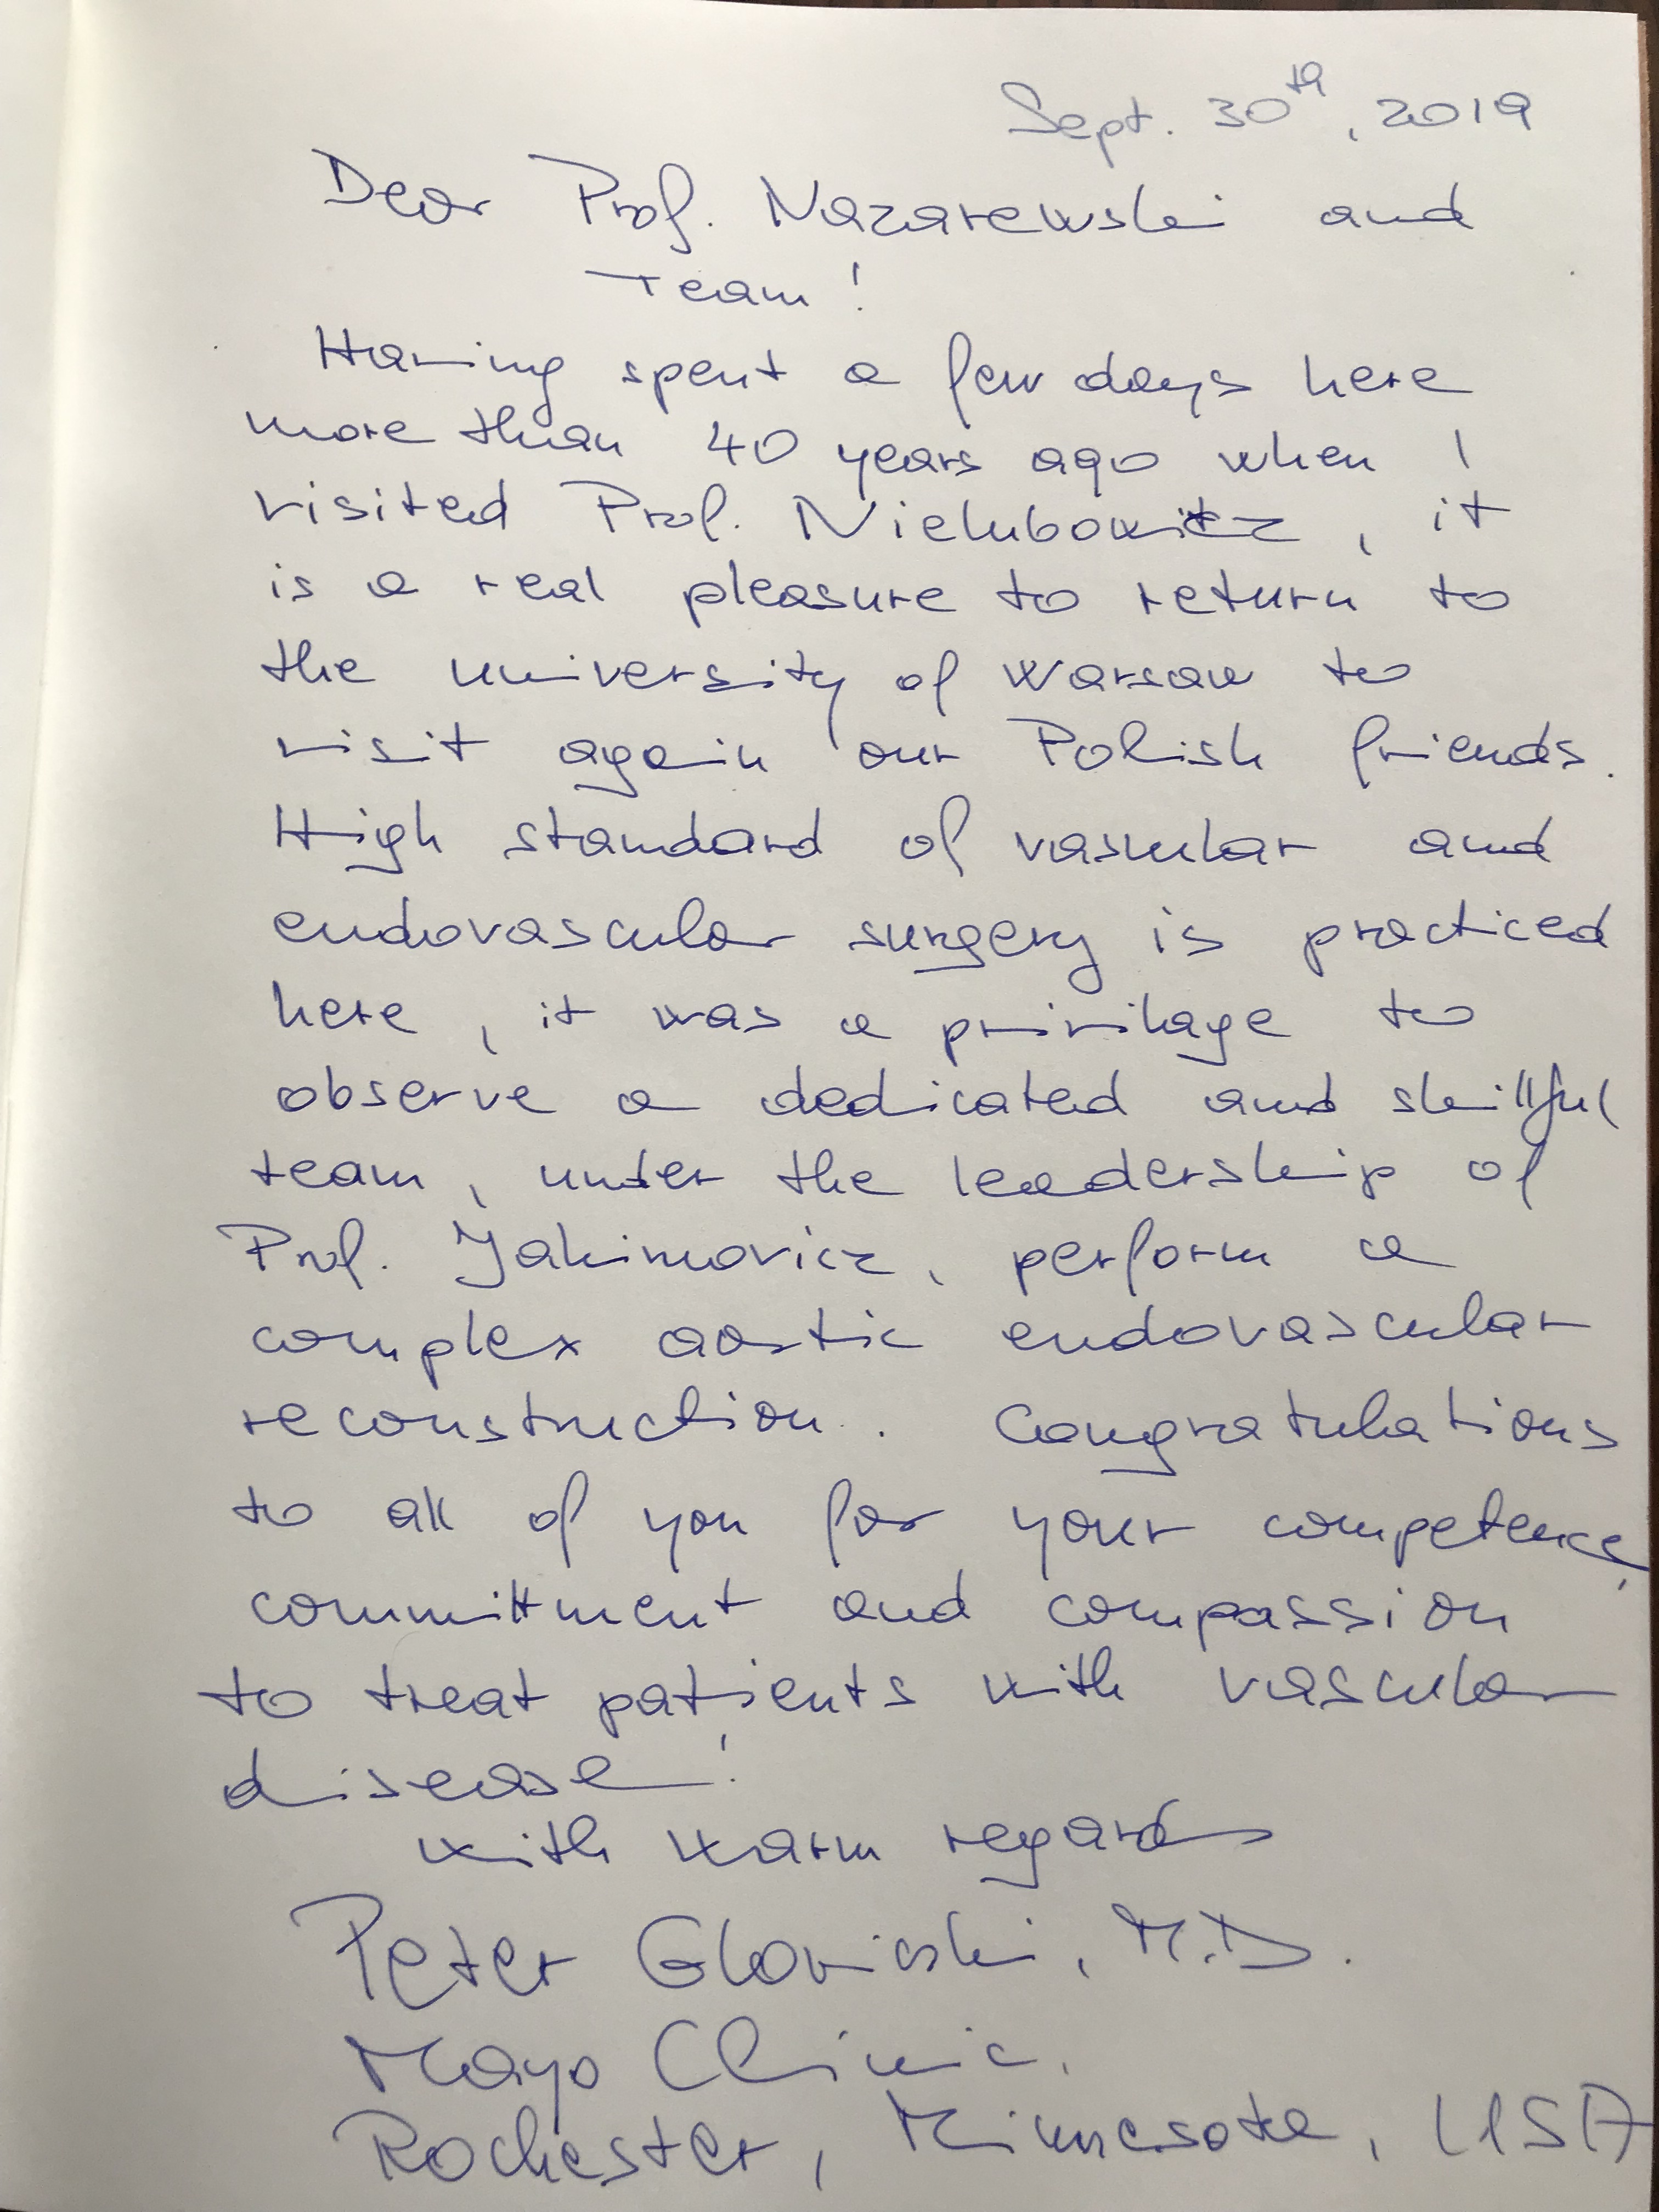 Sept. 30th, 2019
Dear Prof. Nazarewski and
Team!
Having spent a few days here
more than 40 years ago when I
visited Prof. Nielubowicz, it
is a real pleasure to return to
the university of Warsaw to
visit again our Polish friends.
High standard of vascular and
endovascular surgery is practiced
here, it was a privilage to
observe a dedicated and skillful
team, under the leadership of
Prof. Jakimovicz, perform a
complex aortic endovascular
reconstruction. Congratulations
to all of you for your competence,
committment and compassion
to treat patients with vascular
disease!
with warm regards
Peter Gloviczki, M.D.
Mayo Clinic.
Rochester, Minnesota, USA